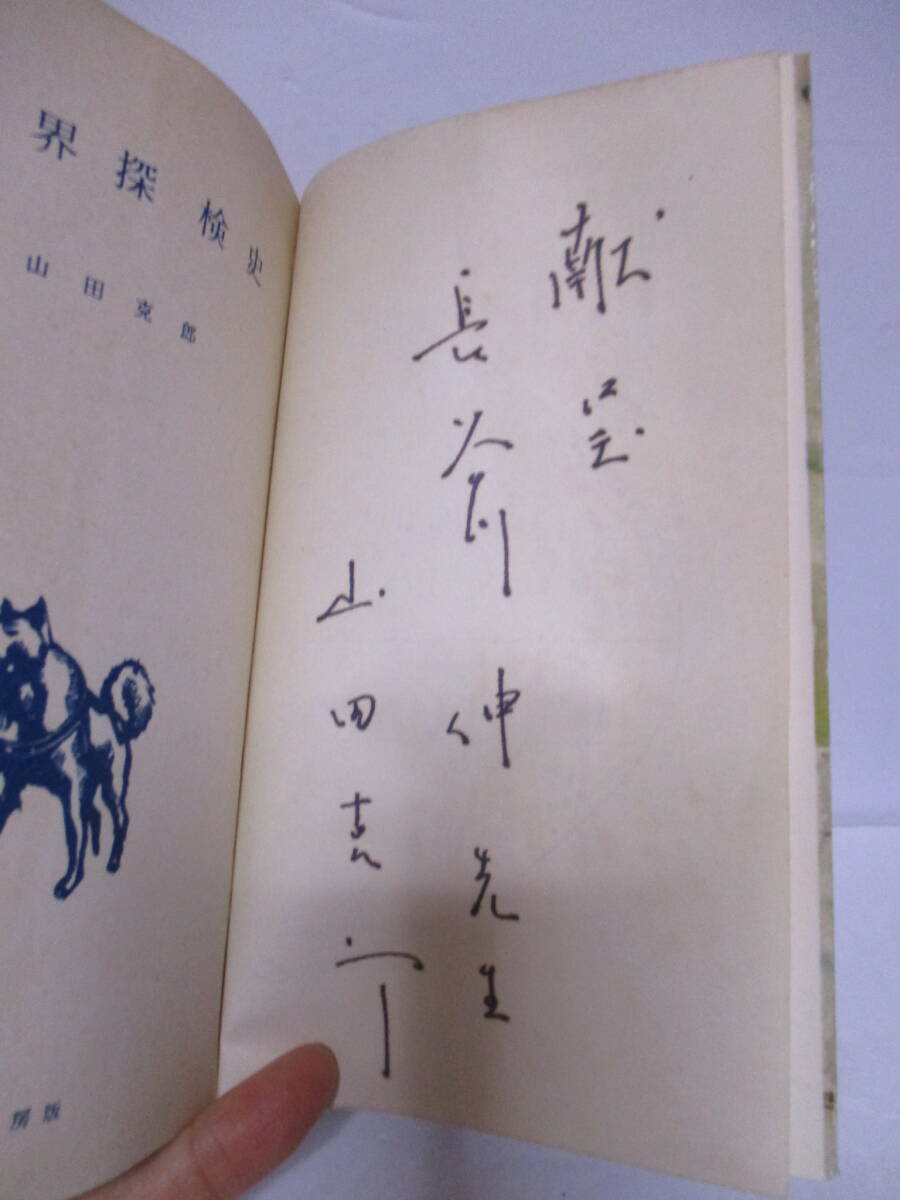 界探検史
山田克郎
房版
献呈
長谷川伸先生
山田克郎